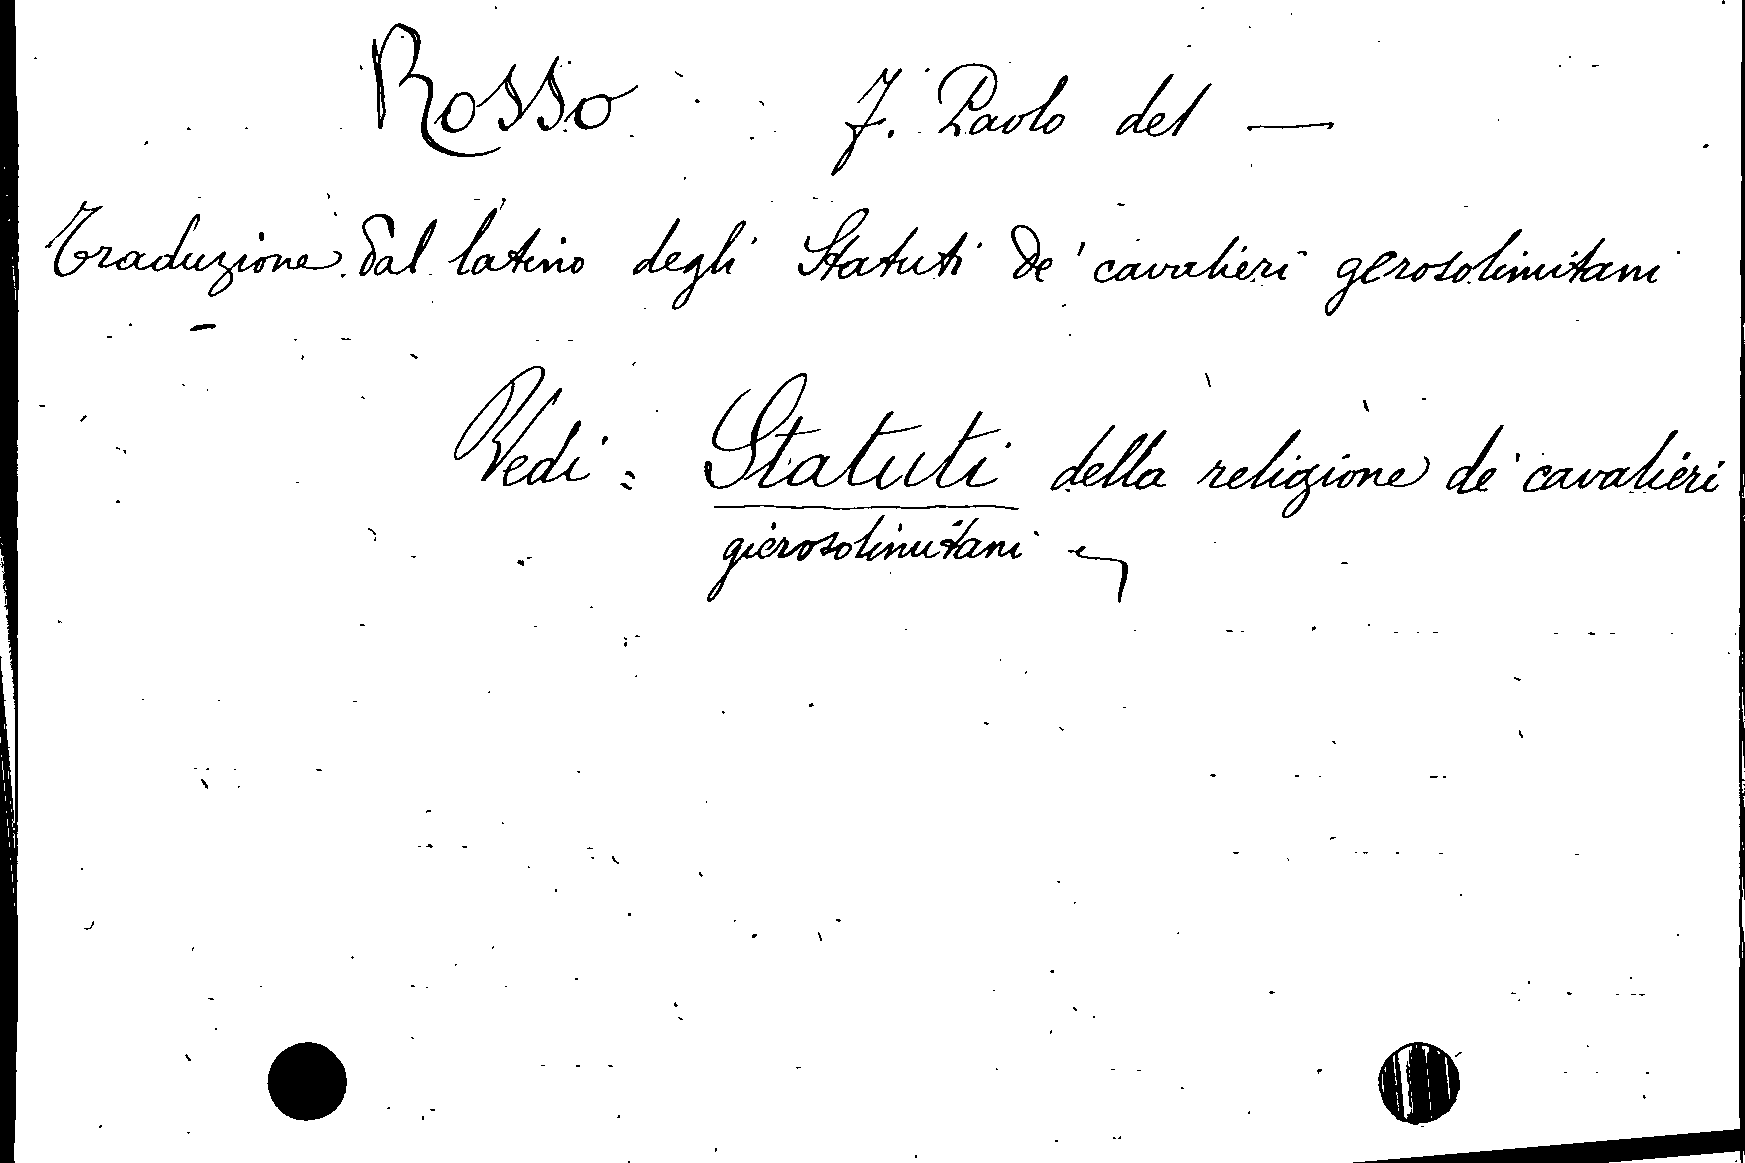 Rosso J. Paolo del —
Traduzione dal latino degli Statuti de' cavalieri gerosolimitani
Vedi = Statuti della religione de' cavalieri
gierosolimitani